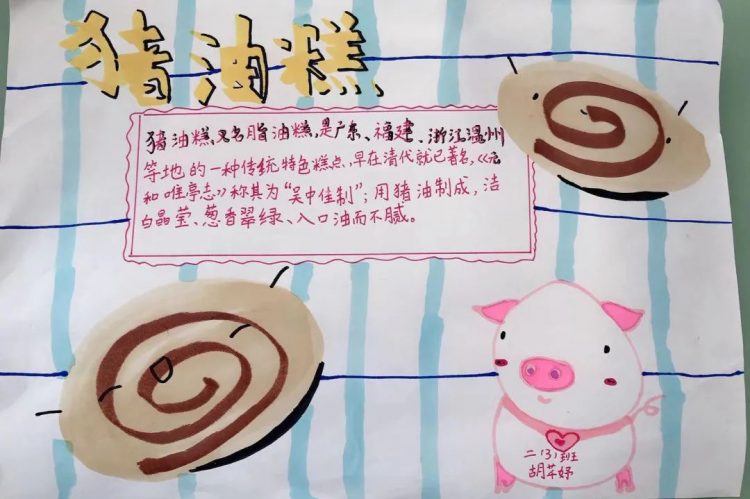 猪油糕
猪油糕又名脂油糕,是广东、福建、浙江温州
等地的一种传统特色糕点,早在清代就已著名,《元
和唯亭志》称其为"吴中佳制";用猪油制成,洁
白晶莹、葱香翠绿、入口油而不腻。
二(3)班
胡芊妤